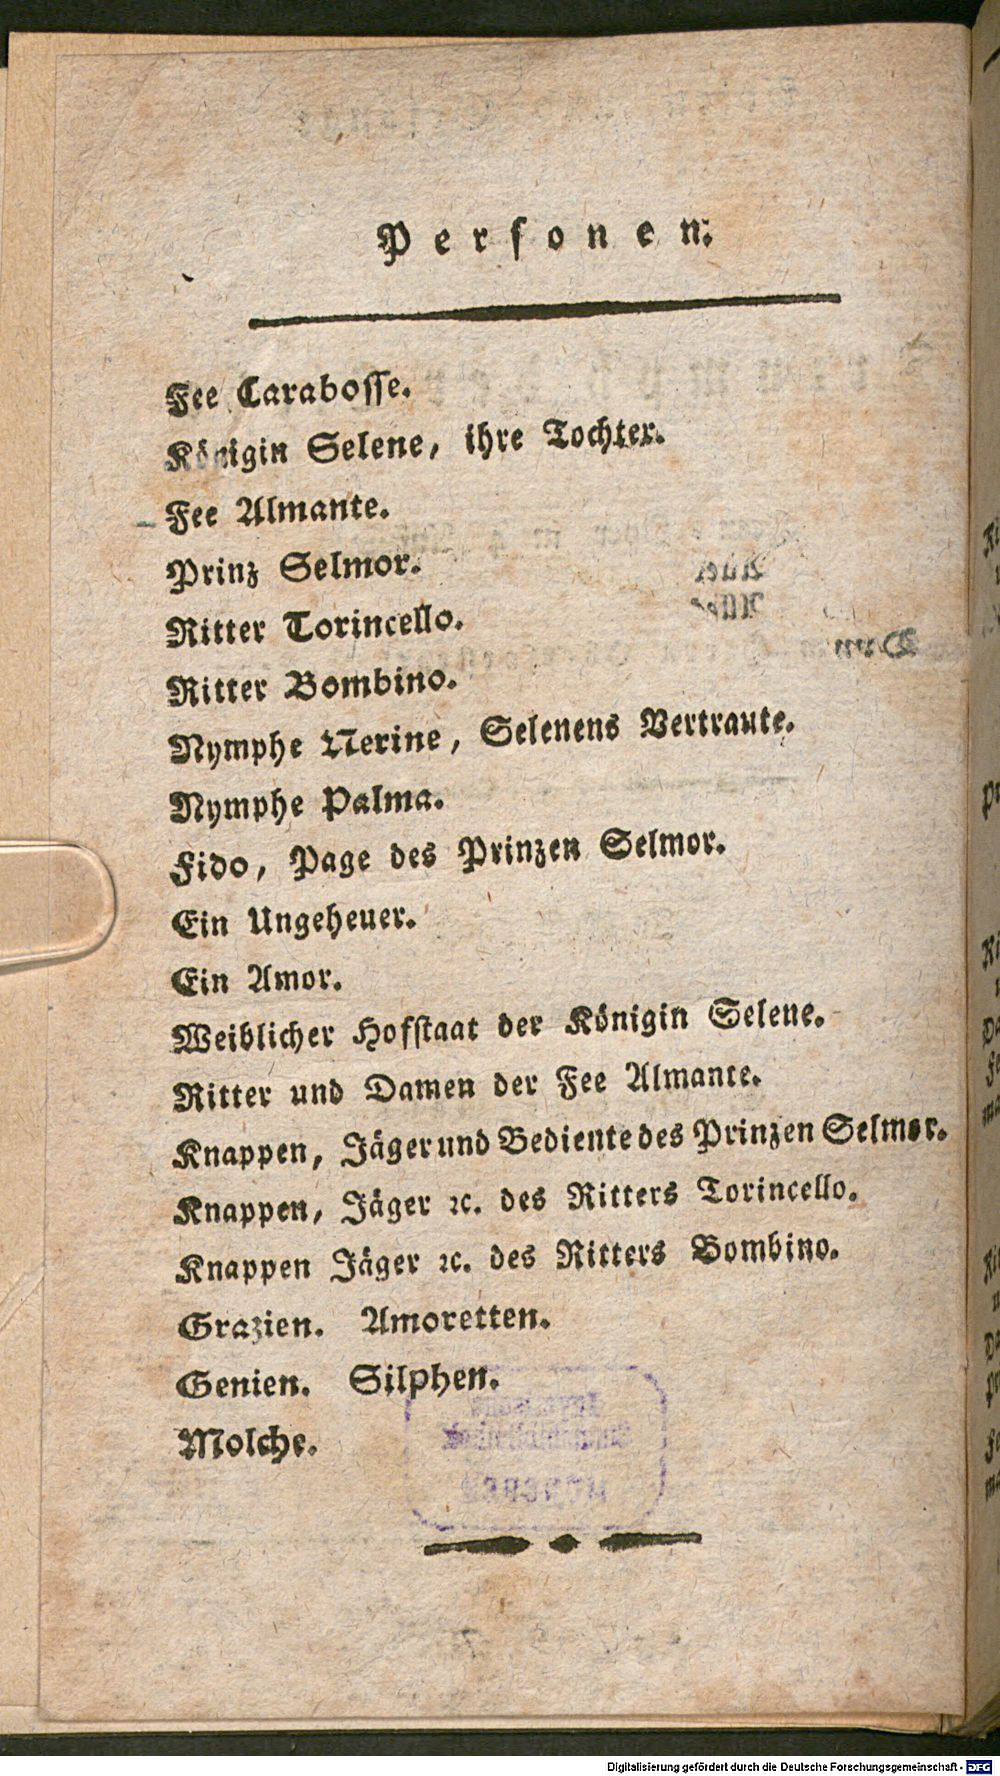 Personen.
Fee Carabosse.
Königin Selene, ihre Tochter.
Fee Almante.
Prinz Selmor.
Ritter Torincello.
Ritter Bombino.
Nymphe Nerine, Selenens Vertraute.
Nymphe Palma.
Fido, Page des Prinzen Selmor.
Ein Ungeheuer.
Ein Amor.
Weiblicher Hofstaat der Königin Selene.
Ritter und Damen der Fee Almante.
Knappen, Jäger und Bediente des Prinzen Selmor.
Knappen, Jäger ꝛc. des Ritters Torincello.
Knappen Jäger ꝛc. des Ritters Bombino.
Grazien. Amoretten.
Genien. Silphen.
Molche.
Digitalisierung gefördert durch die Deutsche Forschungsgemeinschaft - DFG